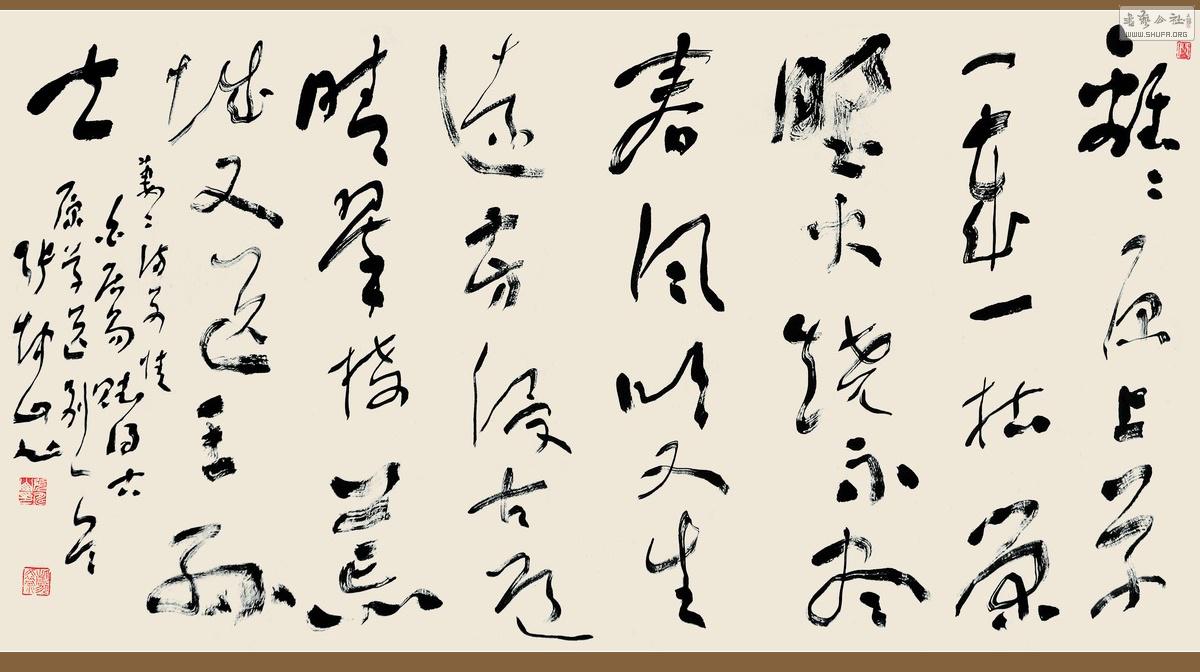 離〻原上草
一歲一枯榮
野火燒不盡
春風吹又生
遠芳侵古道
晴翠接荒
城又送王孫
去
萋〻滿別情
白居易賦得古
原草送別一首
張坤山書
書藝公社
WWW.SHUFA.ORG